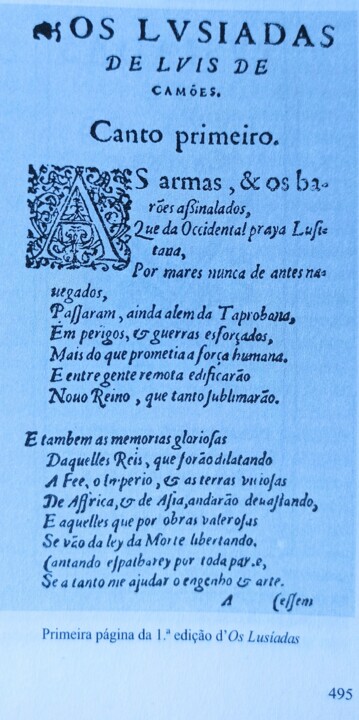 OS LVSIADAS
DE LVIS DE
CAMÕES.
Canto primeiro.
AS armas, & os ba-
rões aßinalados,
Que da Occidental praya Lusi-
tana,
Por mares nunca de antes na-
uegados,
Paſſaram, ainda alem da Taprobana,
Em perigos, & guerras esforçados,
Mais do que prometia a força humana.
E entre gente remota edificarão
Nouo Reino, que tanto ſublimarão.
E tambem as memorias glorioſas
Daquelles Reis, que forão dilatando
A Fee, o Imperio, & as terras vicioſas
De Affrica, & de Aſia, andarão deuaſtando,
E aquelles que por obras valeroſas
Se vão da ley da Morte libertando,
Cantando eſpalharey por toda parte,
Se a tanto me ajudar o engenho & arte.
A (eſſem
Primeira página da 1.ª edição d'Os Lusíadas
495